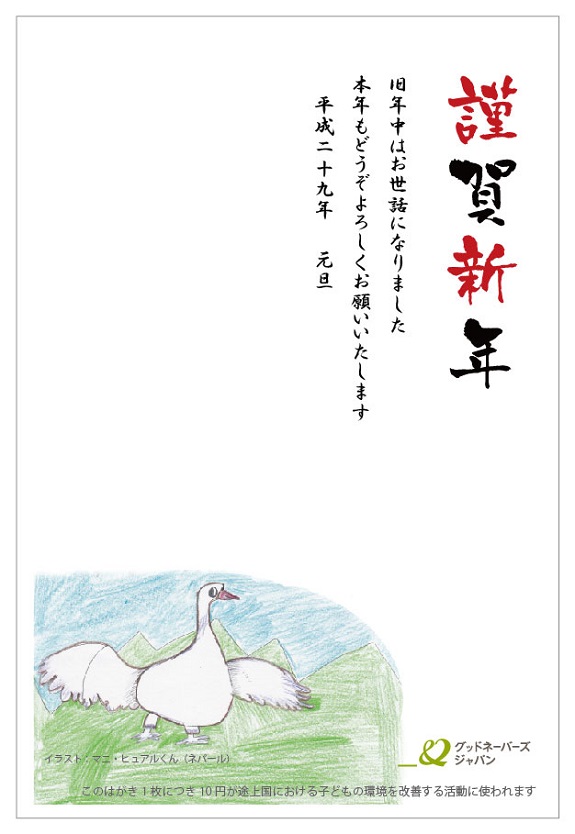 謹賀新年
旧年中はお世話になりました
本年もどうぞよろしくお願いいたします
平成二十九年　元旦
イラスト：マニ・ヒュアルくん（ネパール）
グッドネーバーズ
ジャパン
このはがき1枚につき10円が途上国における子どもの環境を改善する活動に使われます